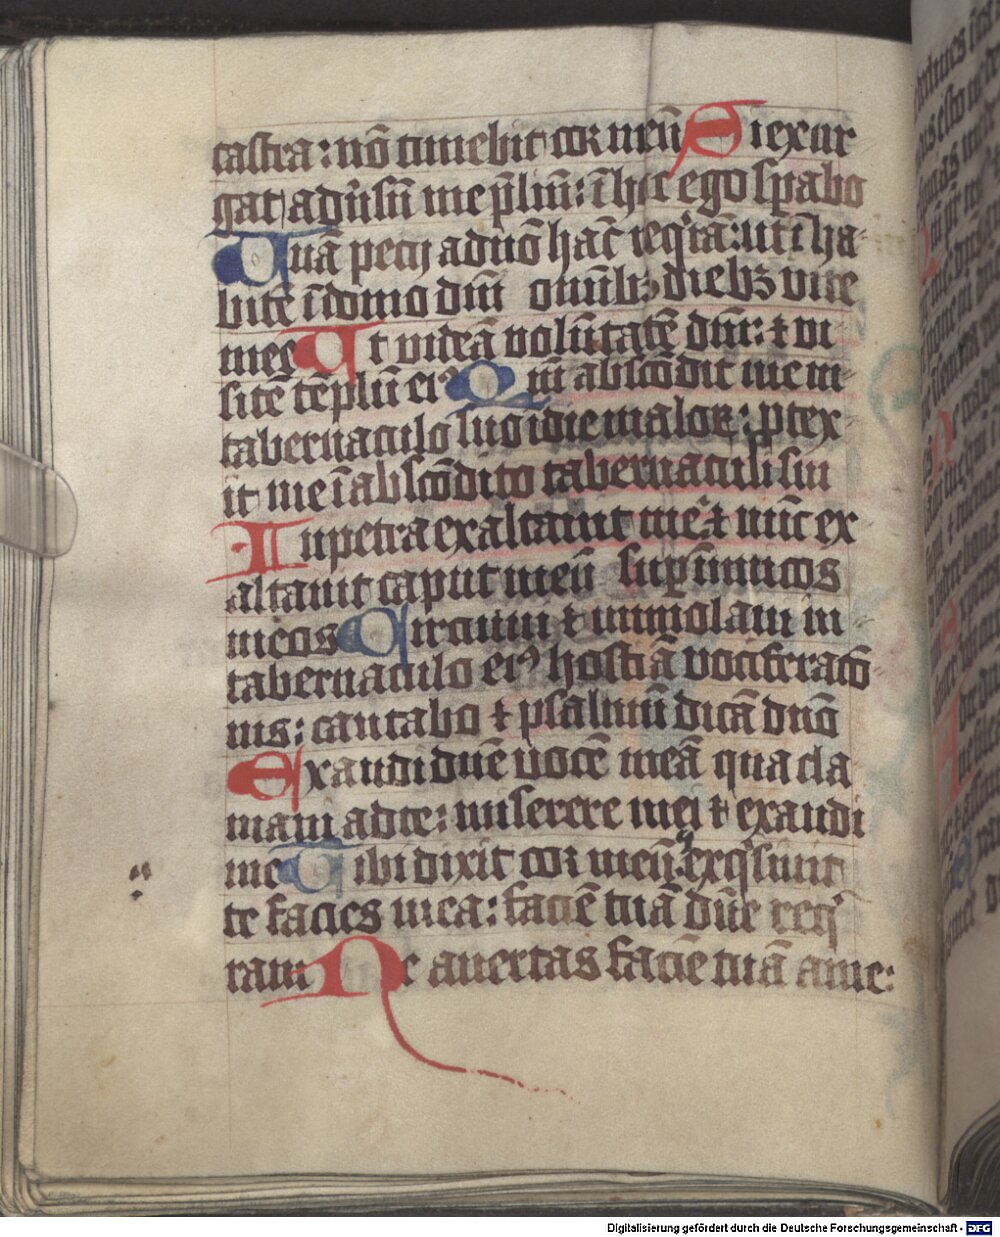 castra: nō timebit cor meū Si exur
gat adūsū me p̄liū: ī hoc ego sp̄abo
Unā pecij a dnō hāc req̇rā: ut ī ha-
bitē ī domo dn̄i om̄ibꝫ diebꝫ vite
mee Ut videā volūtatē dn̄i: ⁊ vi
sitē tēplū eiꝰ Qm̄ abscōdit me in
tabernaculo suo ī die maloꝝ: ꝓtex
it me ī abscōdito tabernaculi sui
In petra exaltavit me: ⁊ nūc ex
altavit caput meū suꝑ inimicos
meos Circuivi ⁊ immolavi in
tabernaculo eiꝰ hostiā vociferacō
nis: cantabo ⁊ psalmū dicā dnō
Exaudi dn̄e vocē meā qua cla
mavi ad te: miserere mei ⁊ exaudi
me Tibi dixit cor meū exq̇sivit
te facies mea: faciē tuā dn̄e req̇
ram Ne avertas faciē tuā a me:
Digitalisierung gefördert durch die Deutsche Forschungsgemeinschaft - DFG